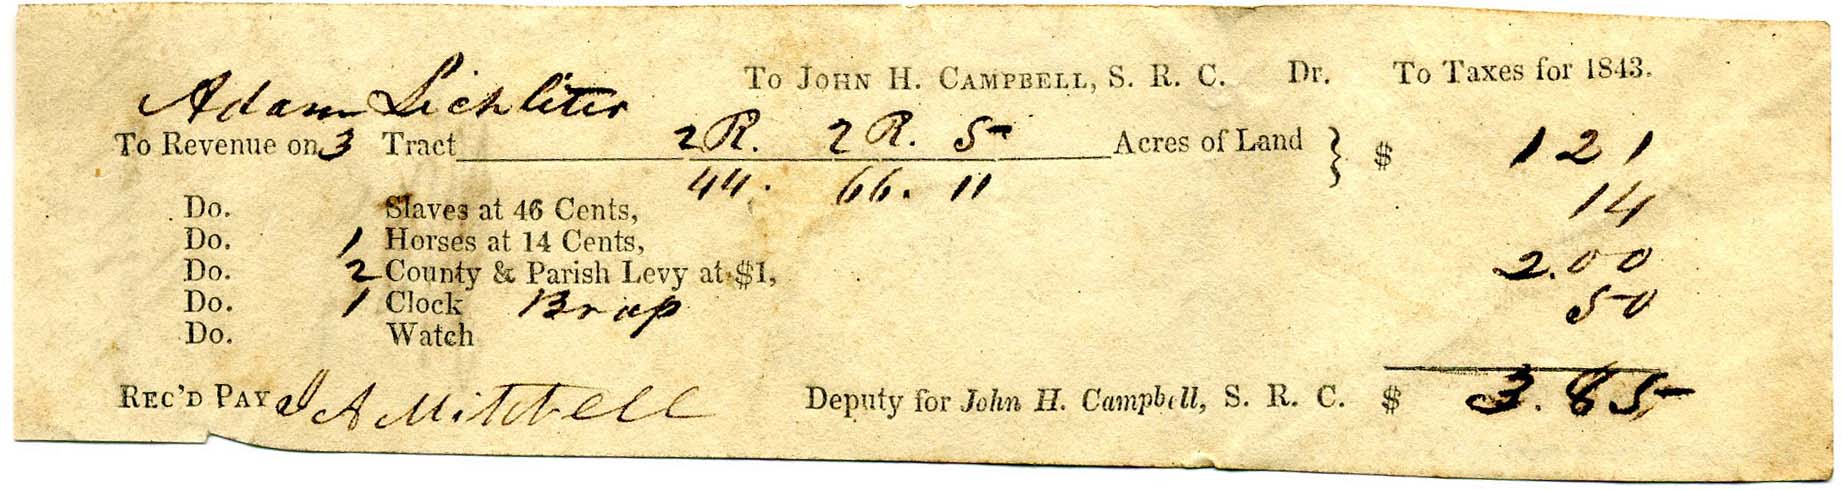 To John H. Campbell, S. R. C. Dr. To Taxes for 1843.
Adam Lichliter
To Revenue on 3 Tract 2 R. 2 R. 5 Acres of Land } $ 1 21
44. 66. 11
Do. Slaves at 46 Cents, 14
Do. 1 Horses at 14 Cents,
Do. 2 County & Parish Levy at $1, 2.00
Do. 1 Clock Brass 50
Do. Watch
Rec'd Pay J A Mitchell Deputy for John H. Campbell, S. R. C. $ 3.85